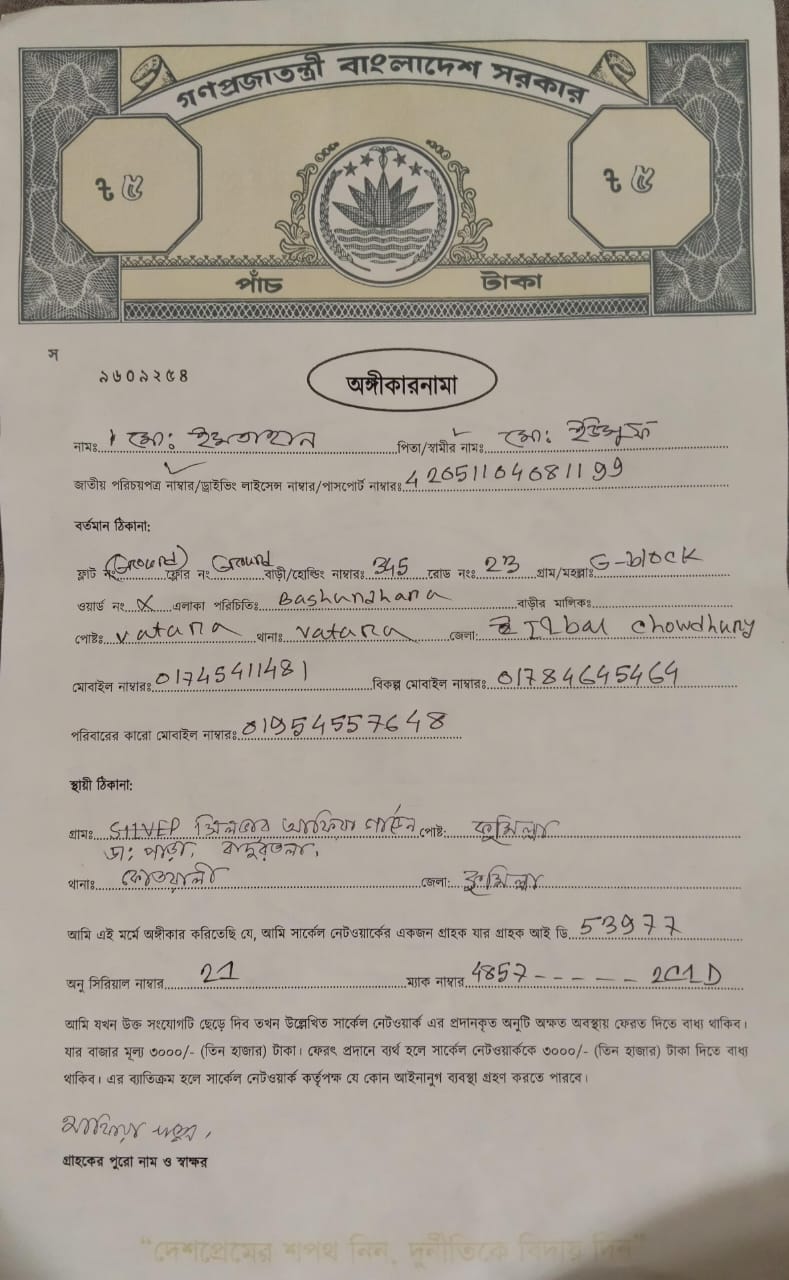 গণপ্রজাতন্ত্রী বাংলাদেশ সরকার
৳ ৫ ৳ ৫
পাঁচ টাকা
স
৯৬০৯২৫৪
অঙ্গীকারনামা
নামঃ মো: ইমতাহান পিতা/স্বামীর নামঃ মো: ইউসুফ
জাতীয় পরিচয়পত্র নাম্বার/ড্রাইভিং লাইসেন্স নাম্বার/পাসপোর্ট নাম্বারঃ 42651104681199
বর্তমান ঠিকানা:
ফ্লাট নং (Ground) ফ্লোর নং Ground বাড়ী/হোল্ডিং নাম্বারঃ 345 রোড নংঃ 23 গ্রাম/মহল্লাঃ G-block
ওয়ার্ড নং X এলাকা পরিচিতিঃ Bashundhara বাড়ীর মালিকঃ
পোষ্টঃ vatara থানাঃ vatara জেলা: Iqbal Chowdhury
মোবাইল নাম্বারঃ 01745411481 বিকল্প মোবাইল নাম্বারঃ 01784645464
পরিবারের কারো মোবাইল নাম্বারঃ 01954557648
স্থায়ী ঠিকানা:
গ্রামঃ SIlVEP সিলভার আফিয়া গার্ডেন পোষ্ট: কুমিল্লা
ডা: পাড়া, বাদুরতলা,
থানাঃ কোতয়ালী জেলা: কুমিল্লা
আমি এই মর্মে অঙ্গীকার করিতেছি যে, আমি সার্কেল নেটওয়ার্কের একজন গ্রাহক যার গ্রাহক আই ডি 53977
অনু সিরিয়াল নাম্বার 21 ম্যাক নাম্বার 4857 - - - - - - 2C1D
আমি যখন উক্ত সংযোগটি ছেড়ে দিব তখন উল্লেখিত সার্কেল নেটওয়ার্ক এর প্রদানকৃত অনুটি অক্ষত অবস্থায় ফেরত দিতে বাধ্য থাকিব।
যার বাজার মূল্য ৩০০০/- (তিন হাজার) টাকা। ফেরৎ প্রদানে ব্যর্থ হলে সার্কেল নেটওয়ার্ককে ৩০০০/- (তিন হাজার) টাকা দিতে বাধ্য
থাকিব। এর ব্যতিক্রম হলে সার্কেল নেটওয়ার্ক কর্তৃপক্ষ যে কোন আইনানুগ ব্যবস্থা গ্রহণ করতে পারবে।
গ্রাহকের পুরো নাম ও স্বাক্ষর
"দেশপ্রেমের শপথ নিন, দুর্নীতিকে বিদায় দিন"